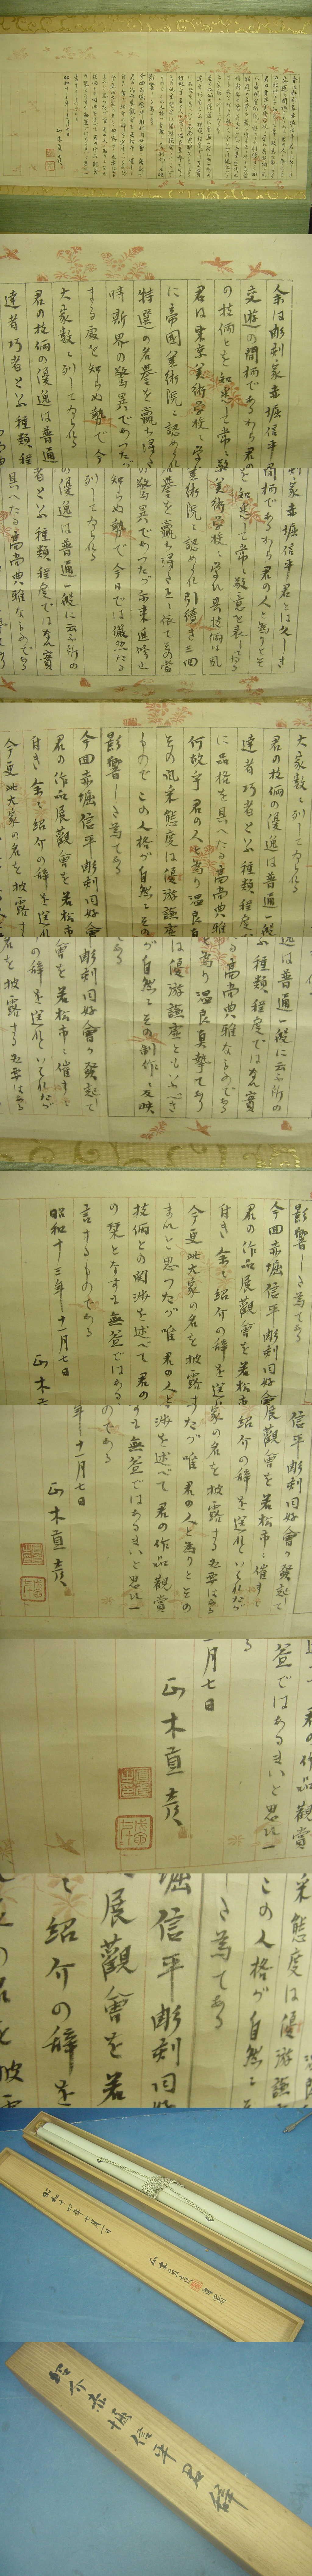 余は彫刻家赤堀信平君とは久しき
交遊の間柄であるから君の人と為りとそ
の技倆とを知悉し常に敬意を表しゐる
君は東京美術學校に学び其技倆は夙
に帝國美術院に認められ引続き三四
特選の名誉を贏ち得たるに依て其當
時斯界の驚異であつたが尓来進修止
まる處を知らぬ勢で今日では儼然たる
大家数に列してゐられる
君の技倆の優逸は普通一般に云ふ所の
達者巧者といふ種類程度ではなく實
に品格を具へたる高尚典雅なものである
何故乎君の人と為り温良真摯であり
その風采態度は優游謙虚ともいふべき
ものでこの人格が自然にその制作に反映
影響しき為である
今回赤堀信平彫刻同好會が發起して
君の作品展觀會を若松市に催すに
付き余に紹介の辞を送れといはれたが
今更此大家の名を披露する必要はある
まいと思つたが唯君の人と為りとその
技倆との関渉を述べて君の作品觀賞
の栞となすも無益ではあるまいと思ひ一
言するものである
昭和十三年十一月七日
正木直彦
昭和十四年十月一日
正木直彦
紹介赤堀信平君辞